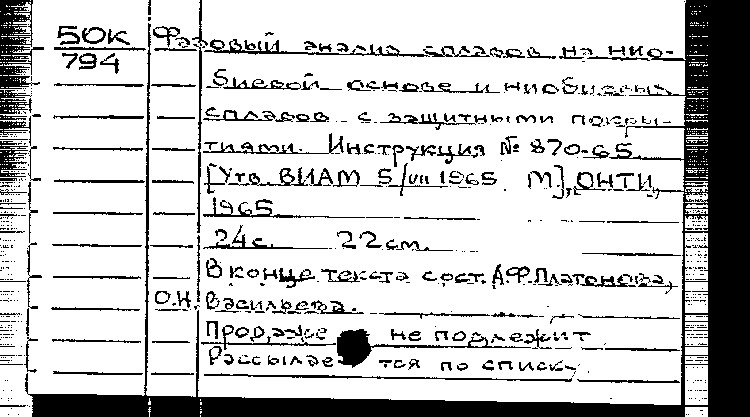 50К Фазовый анализ сплавов на нио-
794
биевой основе и ниобиевых
сплавов с защитными покры-
тиями. Инструкция № 870-65.
[Утв. ВИАМ 5/VII 1965. М], ОНТИ,
1965
24с. 22см.
В конце текста сост. А.Ф.Платонова,
О.Н. Васильева.
Продаже не подлежит
Рассылается по списку